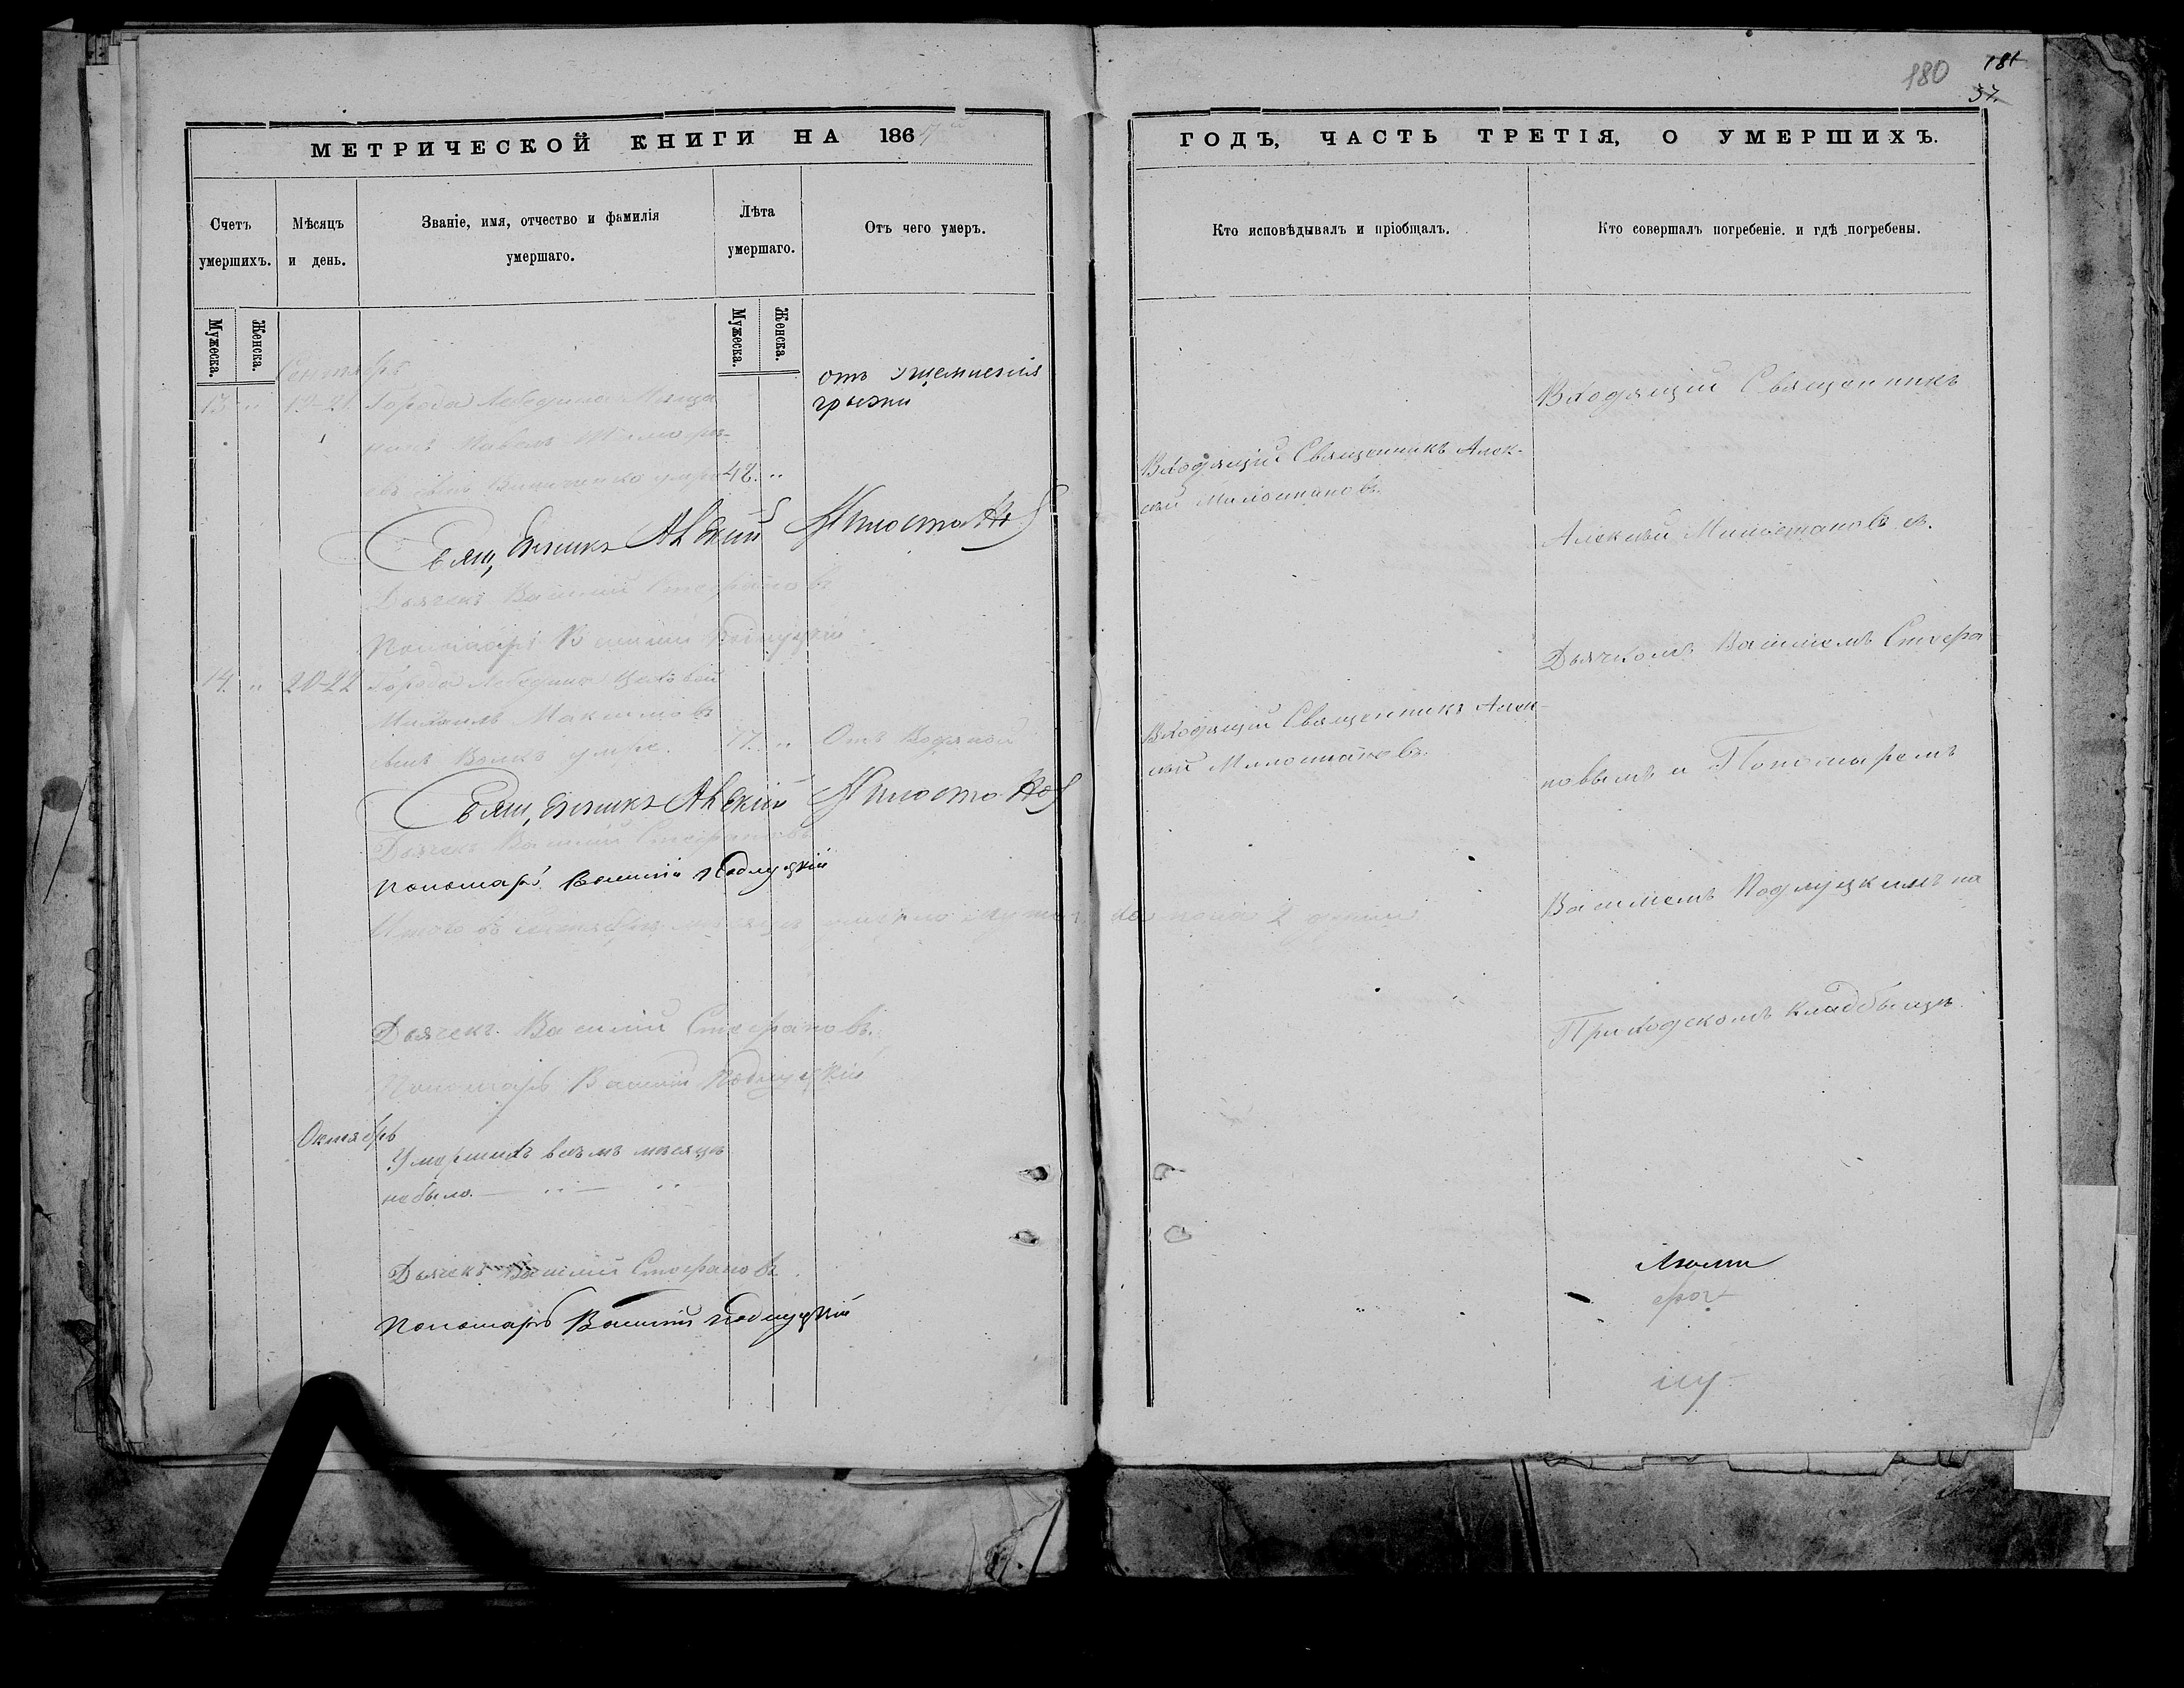 180
181
37.
МЕТРИЧЕСКОЙ КНИГИ НА 1867
Счетъ умершихъ.
Мѣсяцъ и день.
Званіе, имя, отчество и фамилія умершаго.
Лѣта умершаго.
Отъ чего умеръ.
Мужеска.
Женска.
Мужеска.
Женска.
Сентябрь
13 " 19-21 Города Лебедина Мѣща
нинъ Павелъ
сынъ умре 42. "
отъ ущемленія
грыжи
Священникъ Алексій Милостановъ
Дьячекъ Василій Стефановъ
Пономарь Василій Подлуцкій
14. " 20-22 Города Лебедина Цеховой
Михаилъ Максимовъ
сынъ Волкъ умре. 77. " Отъ Водяной
Священникъ Алексій Милостановъ
Дьячекъ Василій Стефановъ
Пономарь Василій Подлуцкій
Итого въ Сентябрѣ мѣсяцѣ умерло мужеска пола 2 души
Дьячекъ Василій Стефановъ.
Пономарь Василій Подлуцкій
Октябрь
Умершихъ въ семъ мѣсяцѣ
небыло. — " — "
Дьячекъ Василій Стефановъ
Пономарь Василій Подлуцкій
ГОДЪ, ЧАСТЬ ТРЕТІЯ, О УМЕРШИХЪ.
Кто исповѣдывалъ и пріобщалъ.
Кто совершалъ погребеніе. и гдѣ погребены.
Входящій Священникъ Алек-
сѣй Милостановъ.
Входящій Священникъ Алек-
сѣй Милостановъ.
Входящій Священникъ
Алексѣй Милостановъ съ.
Дьячкомъ Василіемъ Стефа
новымъ и Пономаремъ
Василіемъ Подлуцкимъ на
Приходскомъ кладбыщѣ.